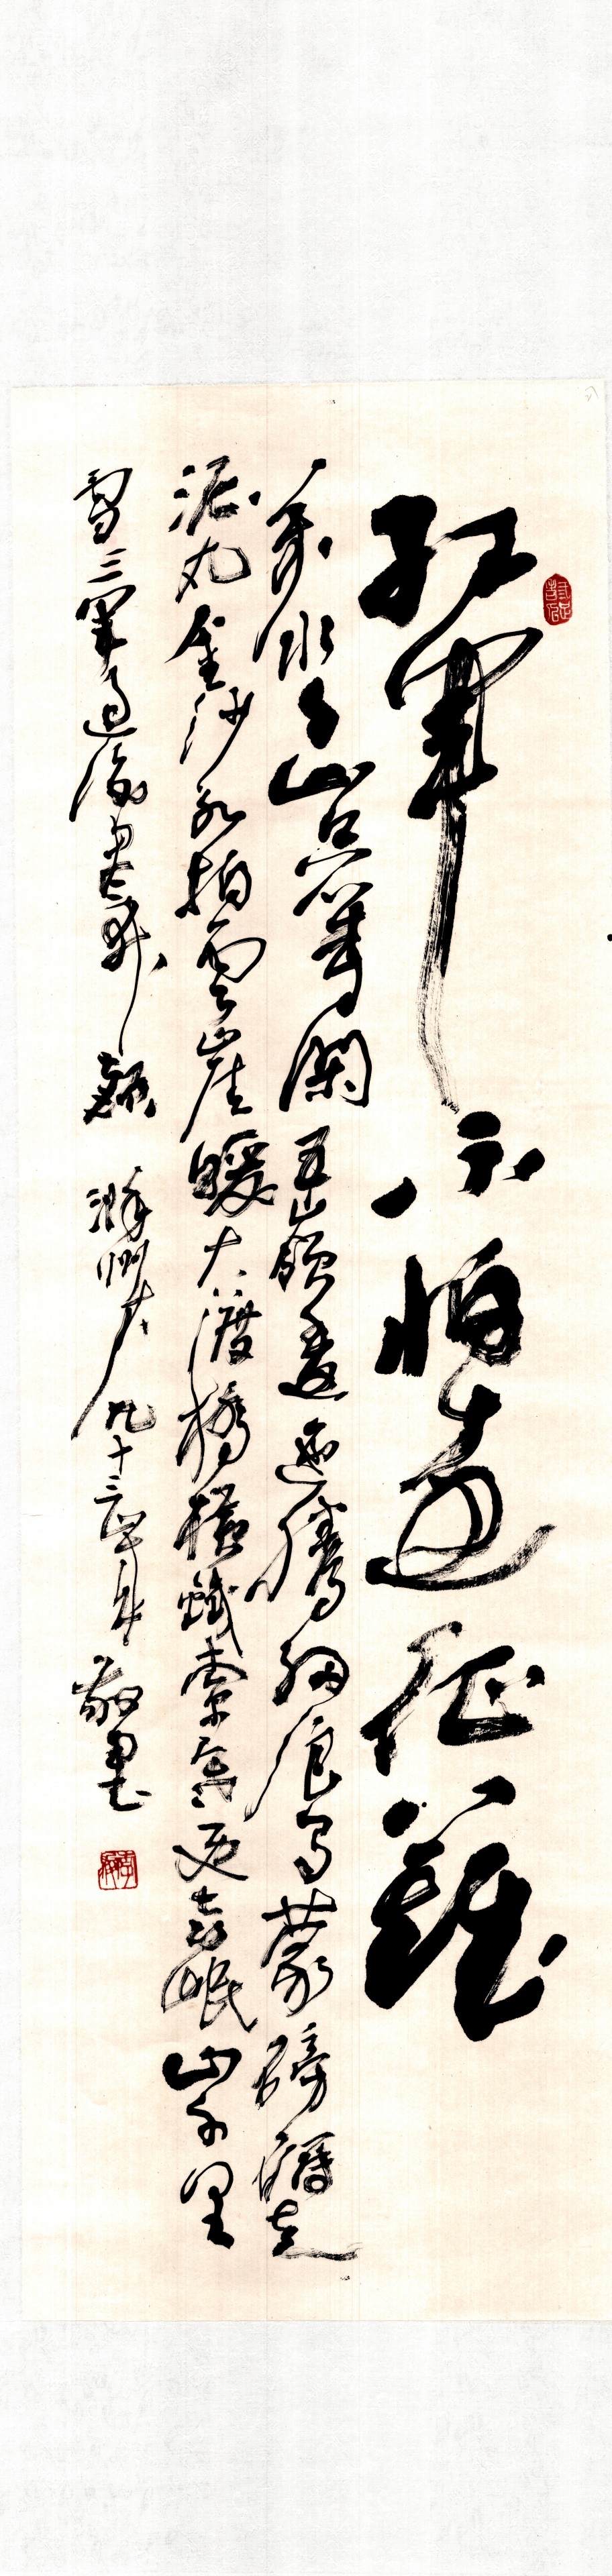 红军不怕远征难
万水千山只等闲五岭逶迤腾细浪乌蒙磅礴走
泥丸金沙水拍云崖暖大渡桥横铁索寒更喜岷山千里
雪三军过后尽开颜 九十三年 敬墨